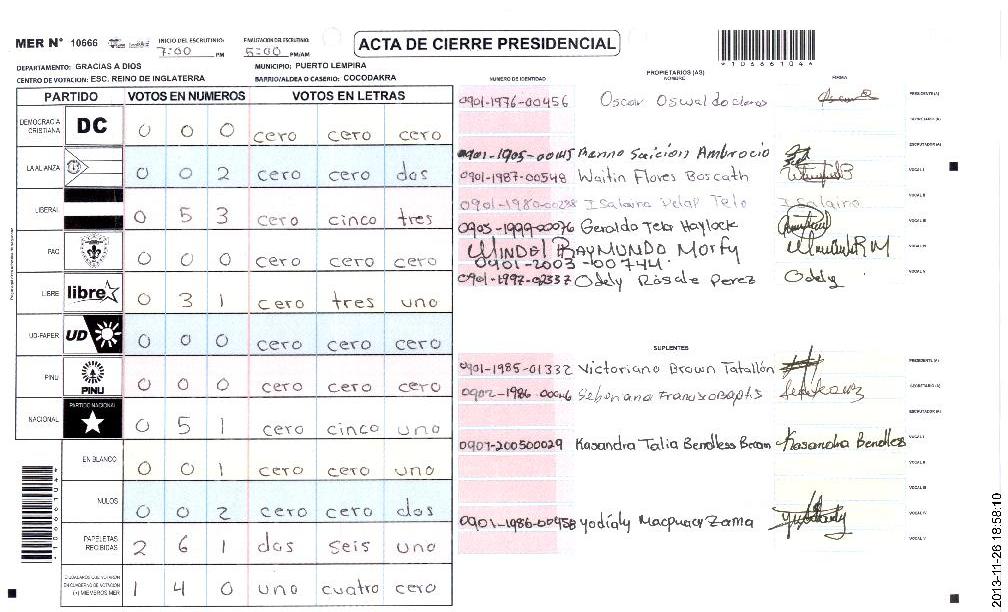 MER N° 10666 INICIO DEL ESCRUTINIO: 7:00 PM FINALIZACION DEL ESCRUTINIO: 5:00 PM/AM
ACTA DE CIERRE PRESIDENCIAL
*10666104*
DEPARTAMENTO: GRACIAS A DIOS MUNICIPIO: PUERTO LEMPIRA
CENTRO DE VOTACION: ESC. REINO DE INGLATERRA BARRIO/ALDEA O CASERIO: COCODAKRA
PARTIDO VOTOS EN NUMEROS VOTOS EN LETRAS
DEMOCRACIA CRISTIANA DC 0 0 0 cero cero cero
LA ALIANZA 0 0 2 cero cero dos
LIBERAL 0 5 3 cero cinco tres
PAC 0 0 0 cero cero cero
LIBRE libre 0 3 1 cero tres uno
UD-FAPER UD 0 0 0 cero cero cero
PINU PINU 0 0 0 cero cero cero
NACIONAL PARTIDO NACIONAL 0 5 1 cero cinco uno
EN BLANCO 0 0 1 cero cero uno
NULOS 0 0 2 cero cero dos
PAPELETAS RECIBIDAS 2 6 1 dos seis uno
CIUDADANOS QUE VOTARON EN CUADERNO DE VOTACION (+) MIEMBROS MER 1 4 0 uno cuatro cero
*10666104*
PROPIETARIOS (AS)
NUMERO DE IDENTIDAD NOMBRE FIRMA
0901-1976-00456 Oscar Oswaldo PRESIDENTE (A)
SECRETARIO (A)
ESCRUTADOR (A)
0901-1905-00145 Ambrocio
0901-1987-00548 Waitin Flores Boscath VOCAL I
0901-1980-00288 VOCAL II
0905-1999-00076 Geraldo Haylock VOCAL III
WINDEL RAYMUNDO Morfy VOCAL IV
0901-2003-00744
0901-1997-02337 Odely Rosale Perez Odely VOCAL V
SUPLENTES
0901-1985-01332 Victoriano Brown Tatallón PRESIDENTE (A)
0902-1986-00046 SECRETARIO (A)
ESCRUTADOR (A)
0901-200500029 Kasandra Talia Bendless Kasandra Bendles VOCAL I
VOCAL II
VOCAL III
0901-1986-00458 Zama VOCAL IV
VOCAL V
2013-11-26 18:58:10